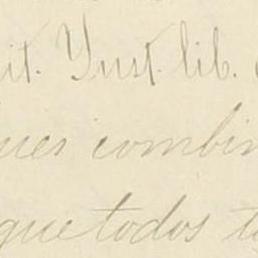 it. Inst. lib.
ues combin
que todos t